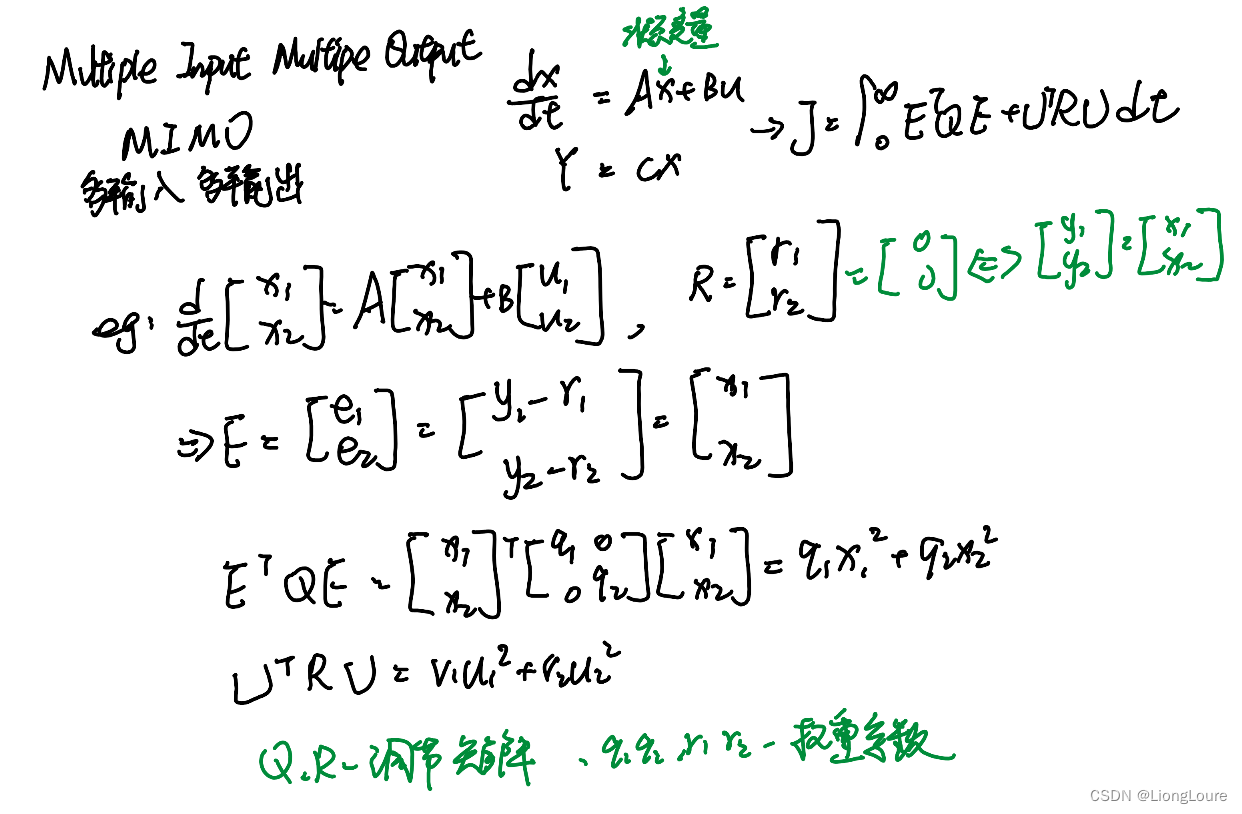 Multiple Input Multipe Output
MIMO
多输入 多输出
状态变量
↓
dx/dt = Ax+Bu
Y = CX
→ J = ∫₀^∞ EᵀQE + UᵀRU dt
eg: d/dt [x₁; x₂] = A[x₁; x₂] + B[u₁; u₂], R = [r₁; r₂] = [0; 0] ⇔ [y₁; y₂] = [x₁; x₂]
⇒ E = [e₁; e₂] = [y₁-r₁; y₂-r₂] = [x₁; x₂]
EᵀQE = [x₁; x₂]ᵀ [q₁ 0; 0 q₂] [x₁; x₂] = q₁x₁² + q₂x₂²
UᵀRU = r₁u₁² + r₂u₂²
Q、R - 调节矩阵、q₁ q₂ , r₁ r₂ - 权重系数
CSDN @LiongLoure